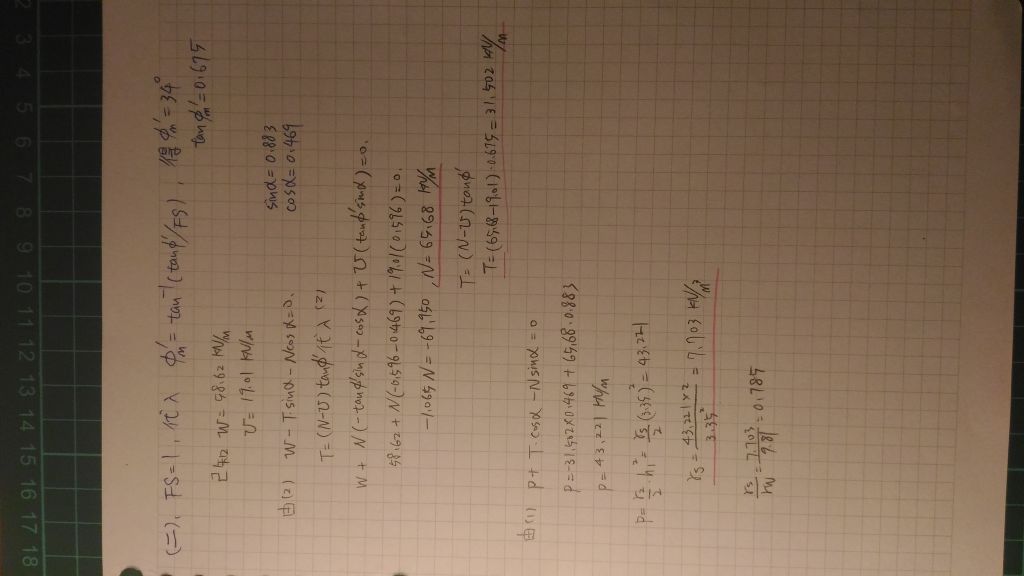 (二). FS=1, 代入 ϕ'm=tan⁻¹(tanϕ'/FS), 得ϕ'm=34°
tanϕ'm=0.675
已知 W=58.62 kN/m
U=19.01 kN/m
sinα=0.883
cosα=0.469
由(2) W-Tsinα-Ncosα=0.
T=(N-U)tanϕ'代入(2)
W+N(-tanϕ'sinα-cosα)+U(tanϕ'sinα)=0.
58.62+N(-0.596-0.469)+19.01(0.596)=0.
-1.065N=-69.950, N=65.68 kN/m
T=(N-U)tanϕ'
T=(65.68-19.01)·0.675=31.502 kN/m
由(1) P+T·cosα-Nsinα=0
P=-31.502×0.469+65.68·0.883
P=43.221 kN/m
P=γs/2·h₁²=γs/2(3.35)²=43.221
γs=43.221×2/3.35²=7.703 kN/m³
γs/γw=7.703/9.81=0.785
2 3 4 5 6 7 8 9 10 11 12 13 14 15 16 17 18